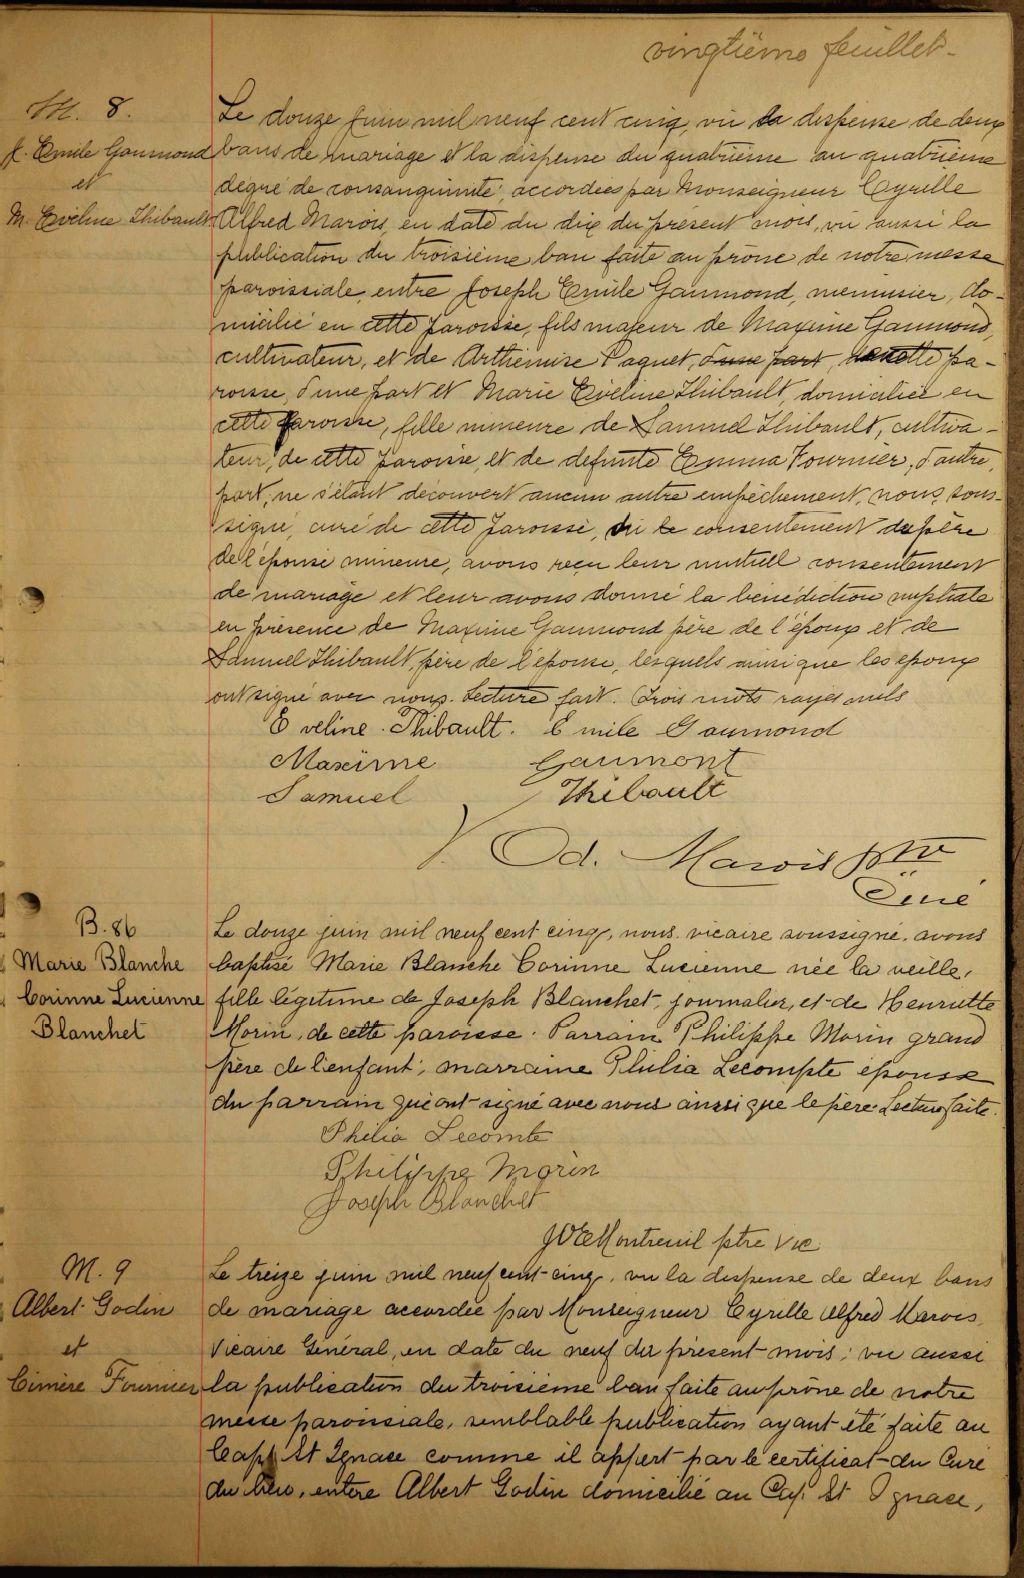 vingtième feuillet
M. 8.
J. Emile Gaumond
et
M. Evéline Thibault
Le douze juin mil neuf cent cinq, vu la dispense de deux
bans de mariage et la dispense du quatrième au quatrième
degré de consanguinité, accordées par Monseigneur Cyrille
Alfred Marois, en date du dix du présent mois, vu aussi la
publication du troisième ban faite au prône de notre messe
paroissiale, entre Joseph Emile Gaumond, menuisier, do-
micilié en cette paroisse, fils majeur de Maxime Gaumond,
cultivateur, et de Arthémise Paquet, d'une part, de cette pa-
roisse, d'une part et Marie Evéline Thibault, domiciliée en
cette paroisse, fille mineure de Samuel Thibault, cultiva-
teur, de cette paroisse, et de defunte Emma Fournier, d'autre
part, ne s'étant découvert aucun autre empêchement, nous, sous-
signé, curé de cette paroisse, vu le consentement du père
de l'épouse mineure, avons reçu leur mutuel consentement
de mariage et leur avons donné la bénédiction nuptiale
en présence de Maxime Gaumond père de l'époux et de
Samuel Thibault, père de l'épouse, lesquels ainsi que les epoux
ont signé avec nous. Lecture fait. Trois mots rayés nuls
Eveline Thibault. Emile Gaumond
Maxime Gaumont
Samuel Thibault
V. Od. Marois ptre
Curé
B. 86
Marie Blanche
Corinne Lucienne
Blanchet
Le douze juin mil neuf cent cinq, nous vicaire soussigné, avons
baptisé Marie Blanche Corinne Lucienne née la veille,
fille légitime de Joseph Blanchet, journalier, et de Henriette
Morin, de cette paroisse. Parrain Philippe Morin grand
père de l'enfant; marraine Philia Lecompte épouse
du parrain qui ont signé avec nous ainsi que le père. Lecture faite.
Philia Lecomte
Philippe Morin
Joseph Blanchet
Montreuil ptre Vic
M. 9
Albert Godin
et
Cimère Fournier
Le treize juin mil neuf cent cinq, vu la dispense de deux bans
de mariage accordée par Monseigneur Cyrille Alfred Marois,
Vicaire Général, en date du neuf du présent mois; vu aussi
la publication du troisième ban faite au prône de notre
messe paroissiale, semblable publication ayant été faite au
Cap St Ignace comme il appert par le certificat du Curé
du lieu, entre Albert Godin domicilié au Cap St Ignace,